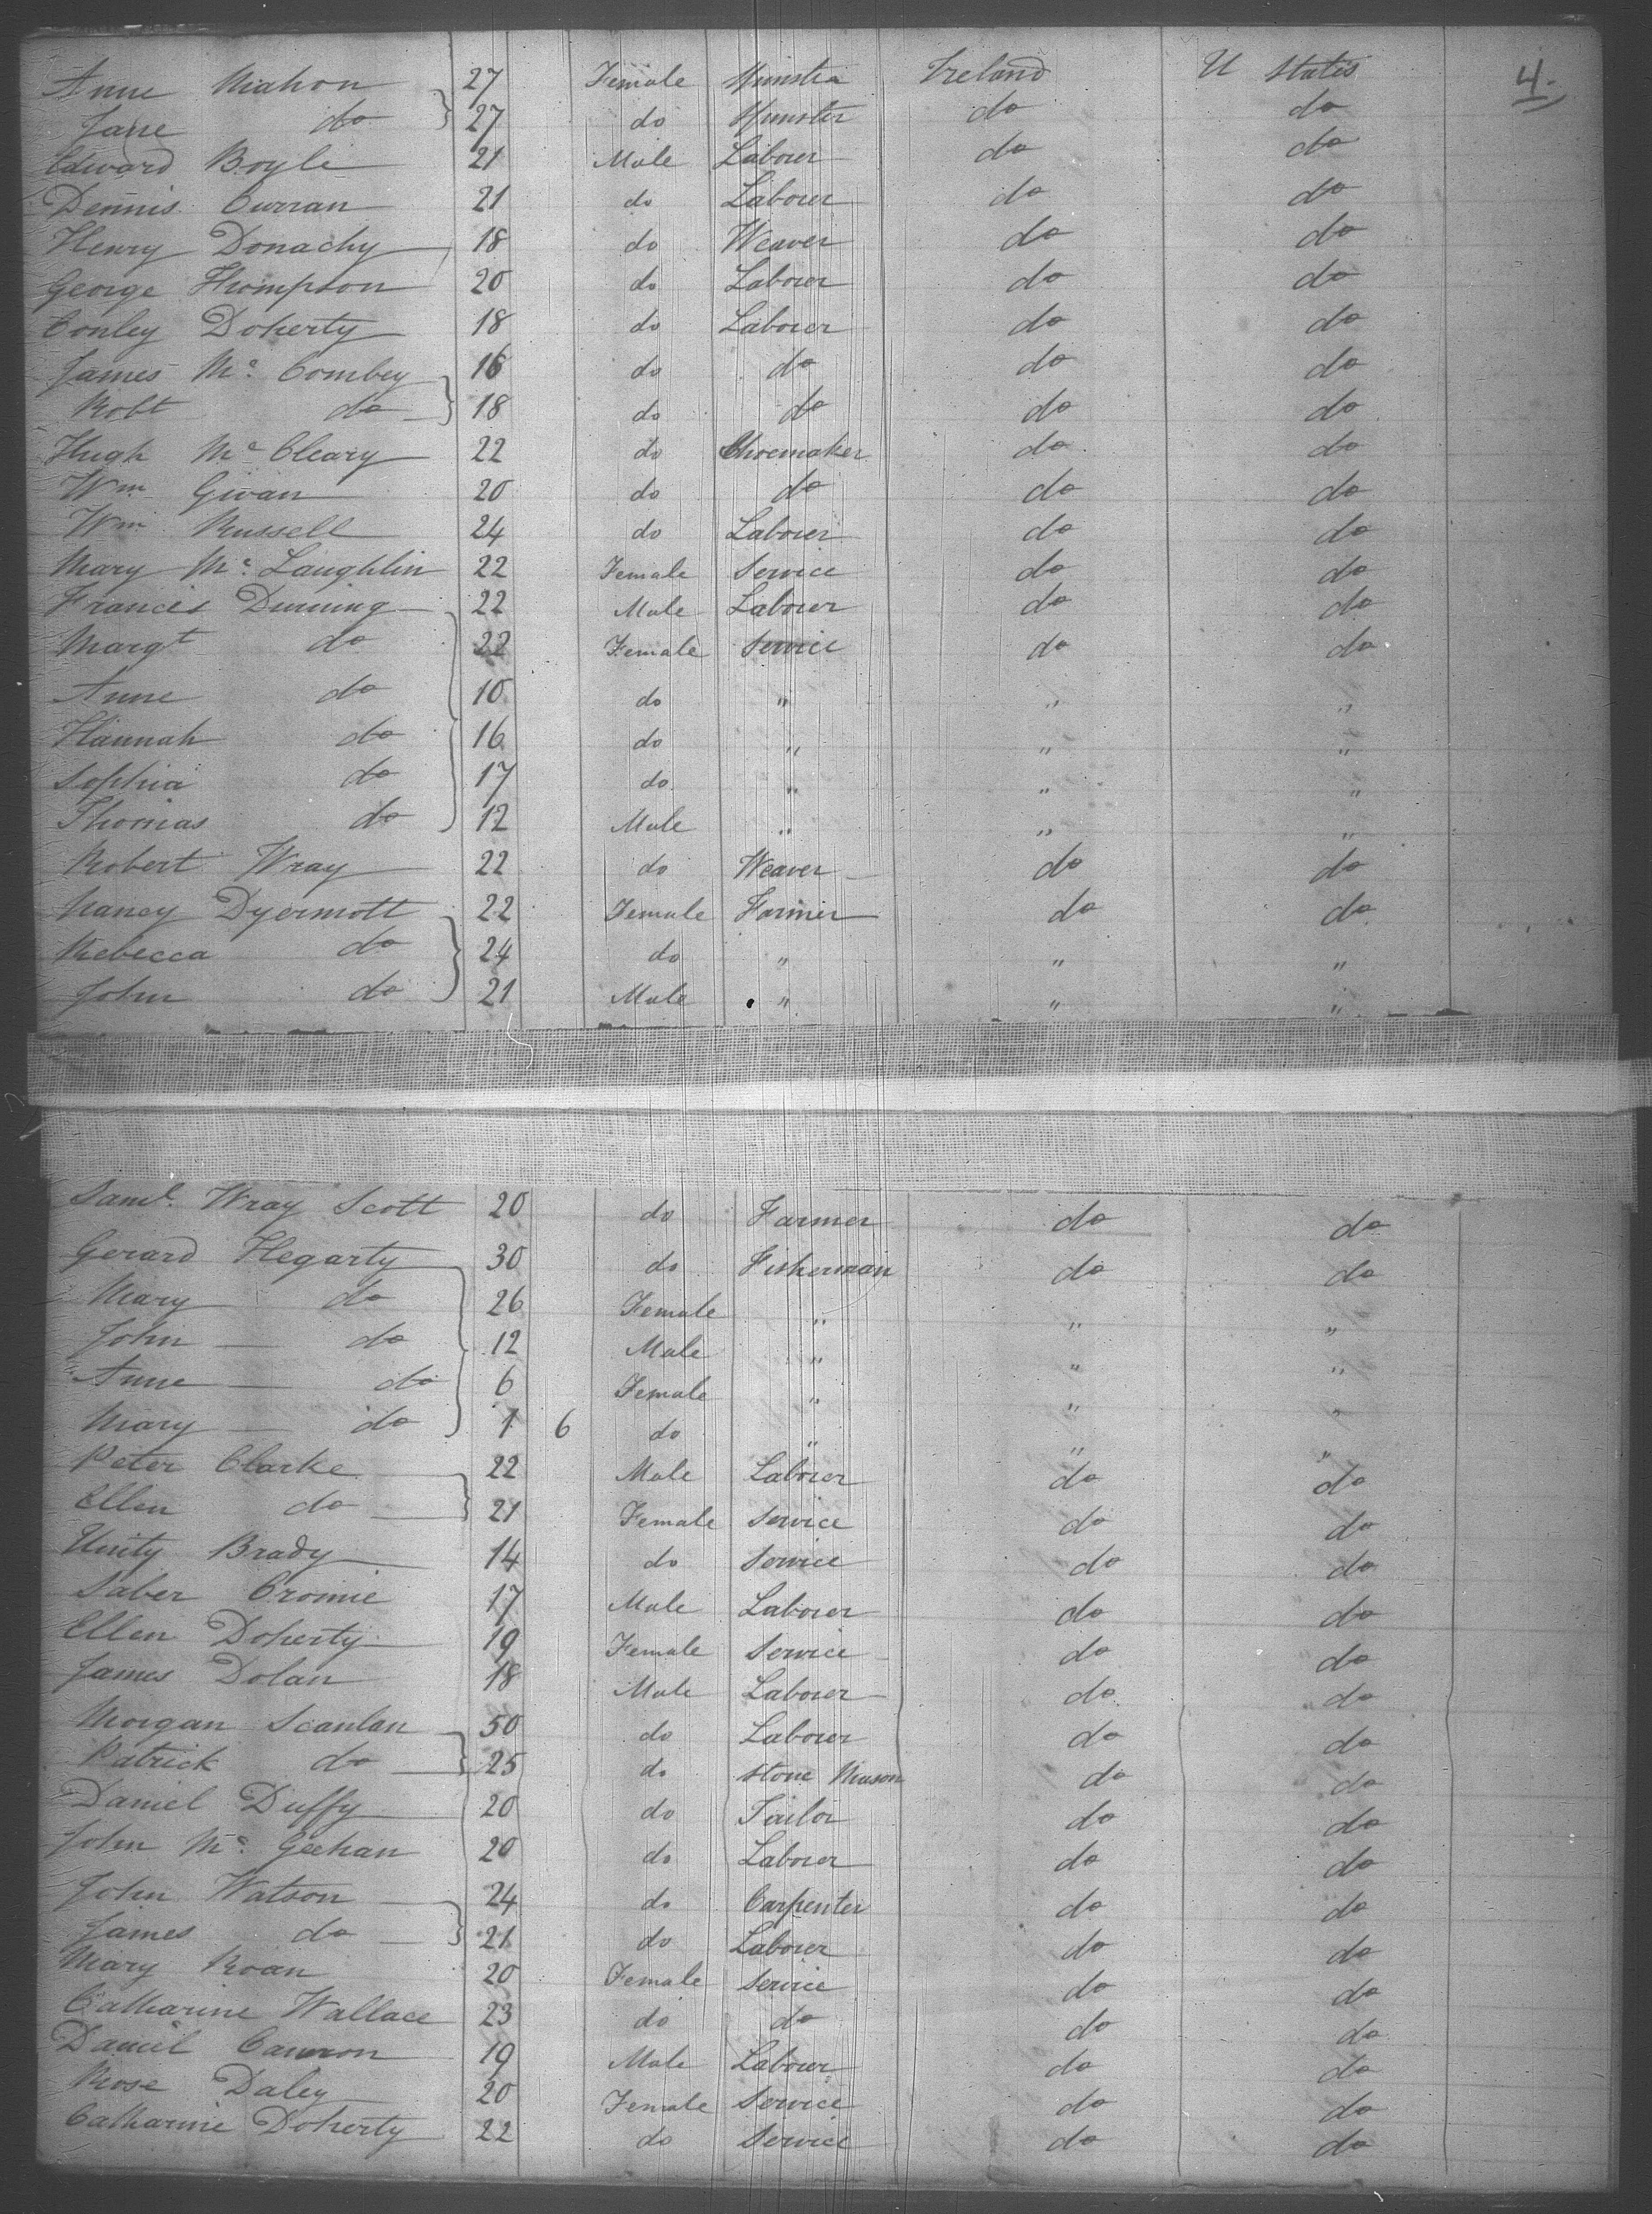 4.
Anne Mahon 27 Female Munster Ireland U States
Jane do 27 do Munster do do
Edward Boyle 21 Male Laborer do do
Dennis Curran 21 do Laborer do do
Henry Donachy 18 do Weaver do do
George Thompson 20 do Laborer do do
Conley Doherty 18 do Laborer do do
James Mc. Combey 16 do do do do
Robt do 18 do do do do
Hugh Mc Cleary 22 do Shoemaker do do
Wm Givan 20 do do do do
Wm Russell 24 do Laborer do do
Mary Mc. Laughlin 22 Female Service do do
Francis Dunning 22 Male Laborer do do
Margt do 22 Female Service do do
Anne do 10 do " " "
Hannah do 16 do " " "
Sophia do 17 do " " "
Thomas do 12 Male " " "
Robert Wray 22 do Weaver do do
Nancy Dyermott 22 Female Farmer do do
Rebecca do 24 do " " "
John do 21 Male " " "
Saml. Wray Scott 20 do Farmer do do
Gerard Hegarty 30 do Fisherman do do
Mary do 26 Female " " "
John do 12 Male " " "
Anne do 6 Female " " "
Mary do 1 6 do " " "
Peter Clarke 22 Male Laborer do do
Ellen do 21 Female Service do do
Unity Brady 14 do Service do do
Saber Cromie 17 Male Laborer do do
Ellen Doherty 19 Female Service do do
James Dolan 18 Male Laborer do do
Morgan Scanlan 50 do Laborer do do
Patrick do 25 do Stone Mason do do
Daniel Duffy 20 do Tailor do do
John Mc. Geehan 20 do Laborer do do
John Watson 24 do Carpenter do do
James do 21 do Laborer do do
Mary Roan 20 Female Service do do
Catharine Wallace 23 do do do do
Daniel Cannon 19 Male Laborer do do
Rose Daley 20 Female Service do do
Catharine Doherty 22 do Service do do